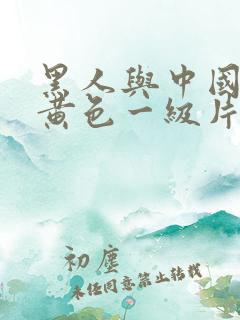 黑人與中國
黃色一級片
初塵
未经同意禁止转载